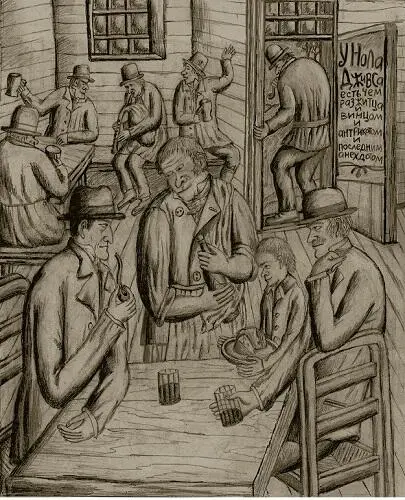 У Нола
Джувса
есть чем
разжитца
и
винцом
и
антрикотом
и
последним
анехдотом